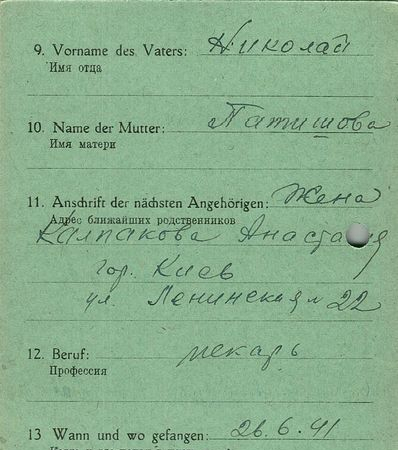 9. Vorname des Vaters: Николай
Имя отца
10. Name der Mutter: Патишова
Имя матери
11. Anschrift der nächsten Angehörigen: Жена
Адрес ближайших родственников
Калпакова Анастас
гор. Киев
ул. Ленинская 22
12. Beruf: пекарь
Профессия
13 Wann und wo gefangen: 26.6.41